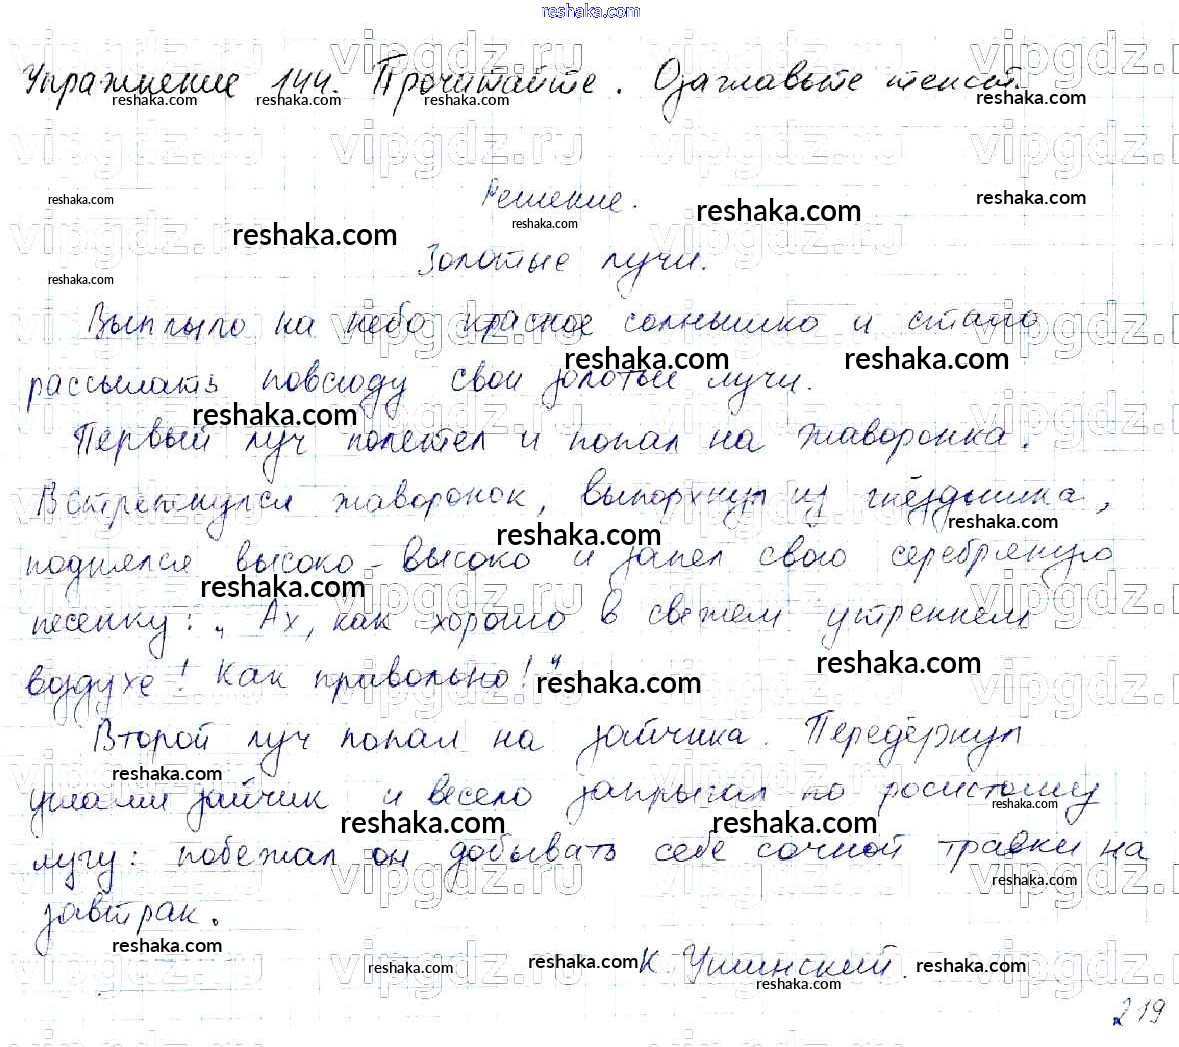 reshaka.com
Упражнение 144. Прочитайте. Озаглавьте текст.
Решение.
Золотые лучи.
Выплыло на небо красное солнышко и стало
рассылать повсюду свои золотые лучи.
Первый луч полетел и попал на жаворонка.
Встрепенулся жаворонок, выпорхнул из гнёздышка,
поднялся высоко-высоко и запел свою серебряную
песенку: „Ах, как хорошо в свежем утреннем
воздухе! Как привольно!"
Второй луч попал на зайчика. Передёрнул
ушами зайчик и весело запрыгал по росистому
лугу: побежал он добывать себе сочной травки на
завтрак.
К. Ушинский.
219